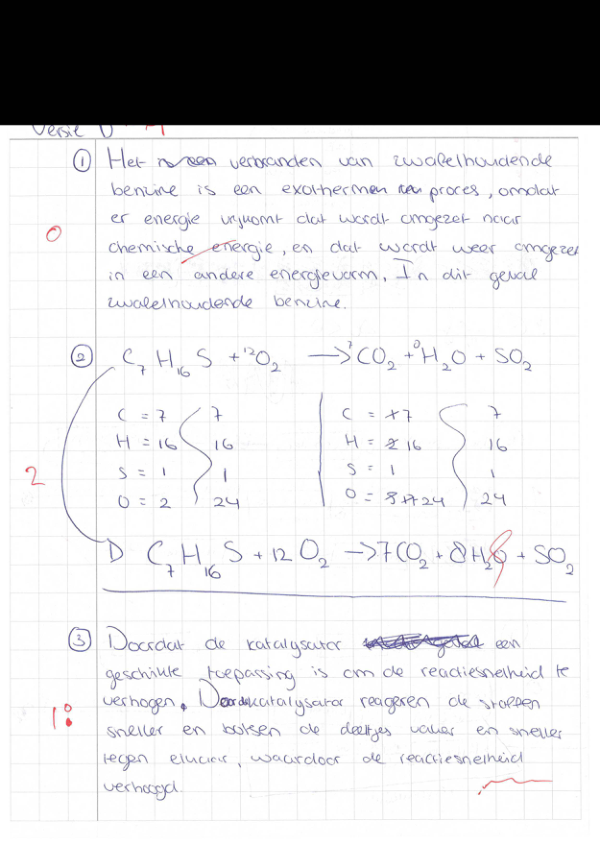 Versie
① Het verbranden van zwavelhoudende
benzine is een exothermen proces, omdat
er energie vrijkomt dat wordt omgezet naar
0
chemische energie, en dat wordt weer omgezet
in een andere energievorm. In dit geval
zwavelhoudende benzine.
② C₇H₁₆S + 12O₂ → 7CO₂ + 8H₂O + SO₂
C = 7 7 C = 7 7
H = 16 16 H = 2 16 16
2
S = 1 1 S = 1 1
O = 2 24 O = 24 24
C₇H₁₆S + 12O₂ → 7CO₂ + 8H₂O + SO₂
③ Doordat de katalysator een
geschikte toepassing is om de reactiesnelheid te
verhogen. katalysator reageren de stoffen
1
sneller en botsen de deeltjes vaker en sneller
tegen elkaar, waardoor de reactiesnelheid
verhoogd.